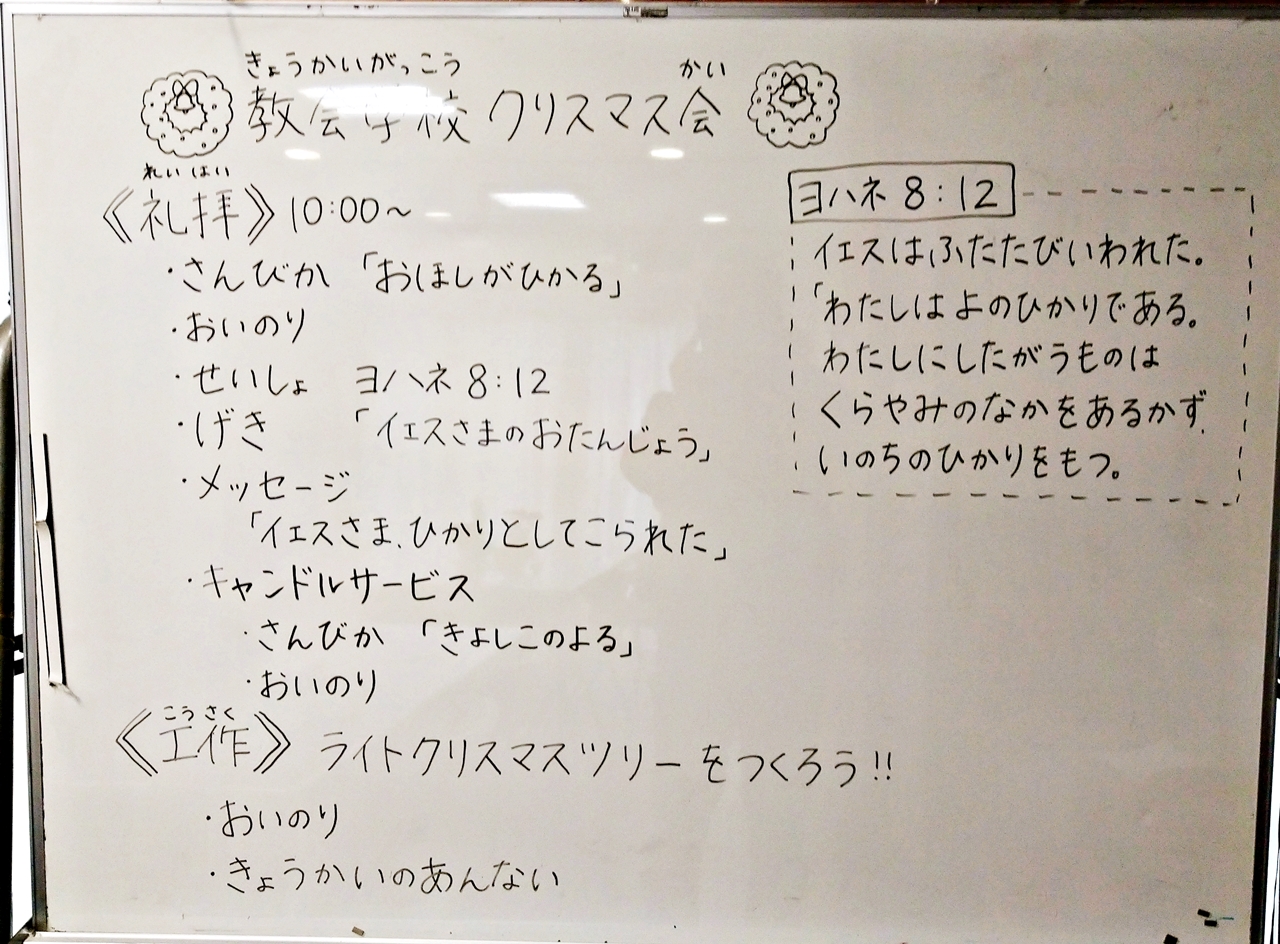 きょうかいがっこう かい
教会学校 クリスマス会
れいはい
《礼拝》10:00~
・さんびか 「おほしがひかる」
・おいのり
・せいしょ ヨハネ 8:12
・げき 「イエスさまのおたんじょう」
・メッセージ
「イエスさま、ひかりとしてこられた」
・キャンドルサービス
・さんびか 「きよしこのよる」
・おいのり
こうさく
《工作》 ライトクリスマスツリーをつくろう!!
・おいのり
・きょうかいのあんない
ヨハネ 8:12
イエスはふたたびいわれた。
「わたしはよのひかりである。
わたしにしたがうものは
くらやみのなかをあるかず、
いのちのひかりをもつ。